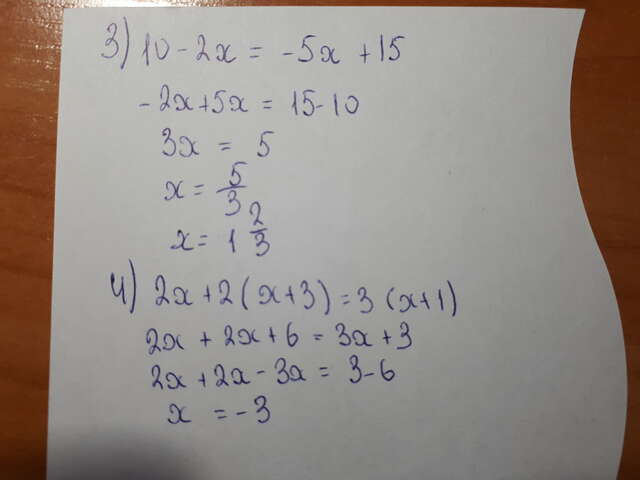 3) 10 - 2x = -5x + 15
-2x + 5x = 15 - 10
3x = 5
x = 5/3
x = 1 2/3
4) 2x + 2(x+3) = 3(x+1)
2x + 2x + 6 = 3x + 3
2x + 2x - 3x = 3 - 6
x = -3